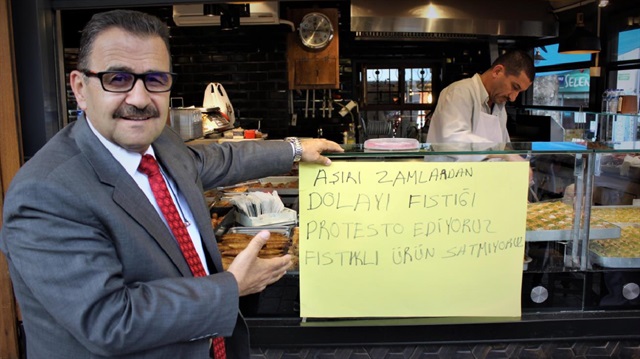 AŞIRI ZAMLARDAN
DOLAYI FISTIĞI
PROTESTO EDİYORUZ
FISTIKLI ÜRÜN SATMIYORUZ
SELEN